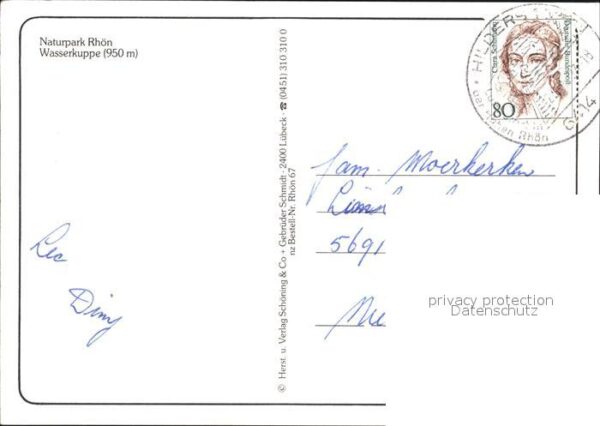 Naturpark Rhön
Wasserkuppe (950 m)
© Herst. u. Verlag Schöning & Co + Gebrüder Schmidt · 2400 Lübeck · ☎ (0451) 310 310 0
nz Bestell-Nr. Rhön 67
Clara Schumann
Deutsche Bundespost
80
6414
Rhön
fam. Moerkerken
5691
Leo
Diny
privacy protection
Datenschutz